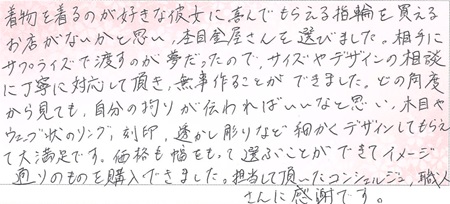 着物を着るのが好きな彼女に喜んでもらえる指輪を買える
お店がないかと思い、杢目金屋さんを選びました。相手に
サプライズで渡すのが夢だったので、サイズやデザインの相談
に丁寧に対応して頂き、無事作ることができました。どの角度
から見ても、自分の拘りが伝わればいいなと思い、木目や
ウェーブ状のリング、刻印、透かし彫りなど細かくデザインしてもらえ
て大満足です。価格も幅をもって選ぶことができてイメージ
通りのものを購入できました。担当して頂いたコンシェルジュ、職人
さんに感謝です。